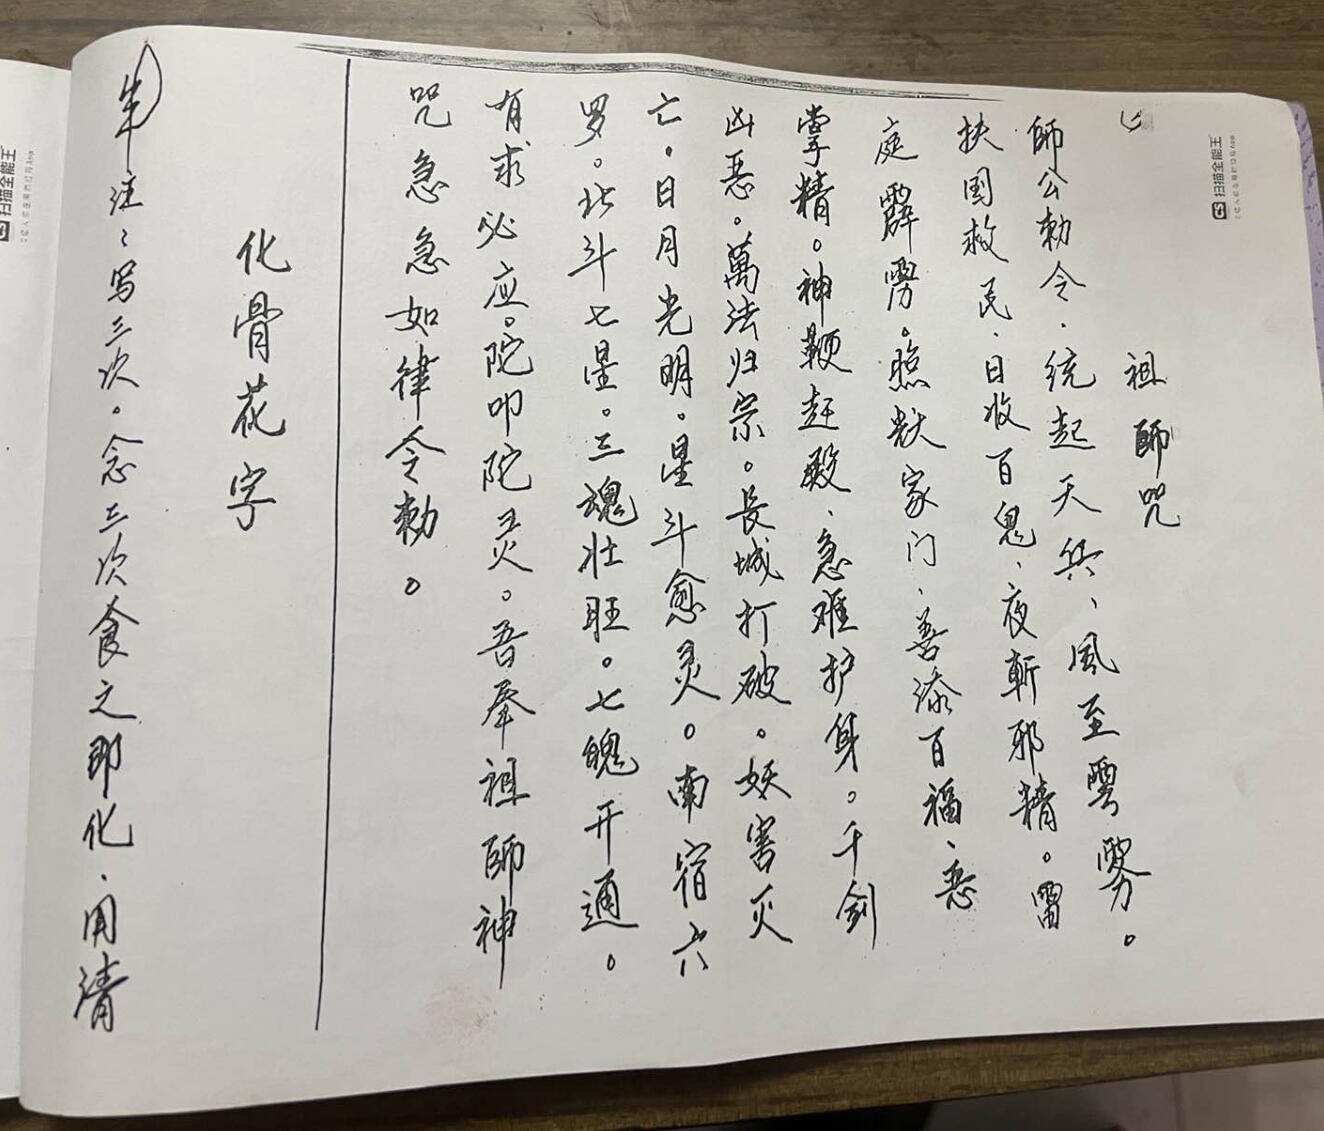 祖師咒
師公勅令、统起天兵、風至雲雾。
扶国救民、日收百鬼、夜斬邪精。雷
庭霹雳。照状家门、善添百福、恶
掌精。神鞭赶殿、急难护身。千剑
凶恶。萬法归宗。長城打破。妖害灭
亡。日月光明。星斗愈灵。南宿六
罗。北斗七星。三魂壮旺。七魄开通。
有求必应。陀叩陀灵。吾奉祖師神
咒急急如律令勅。
化骨花字
注：写三次。念三次食之即化、用清
扫描全能王
CS 扫描全能王